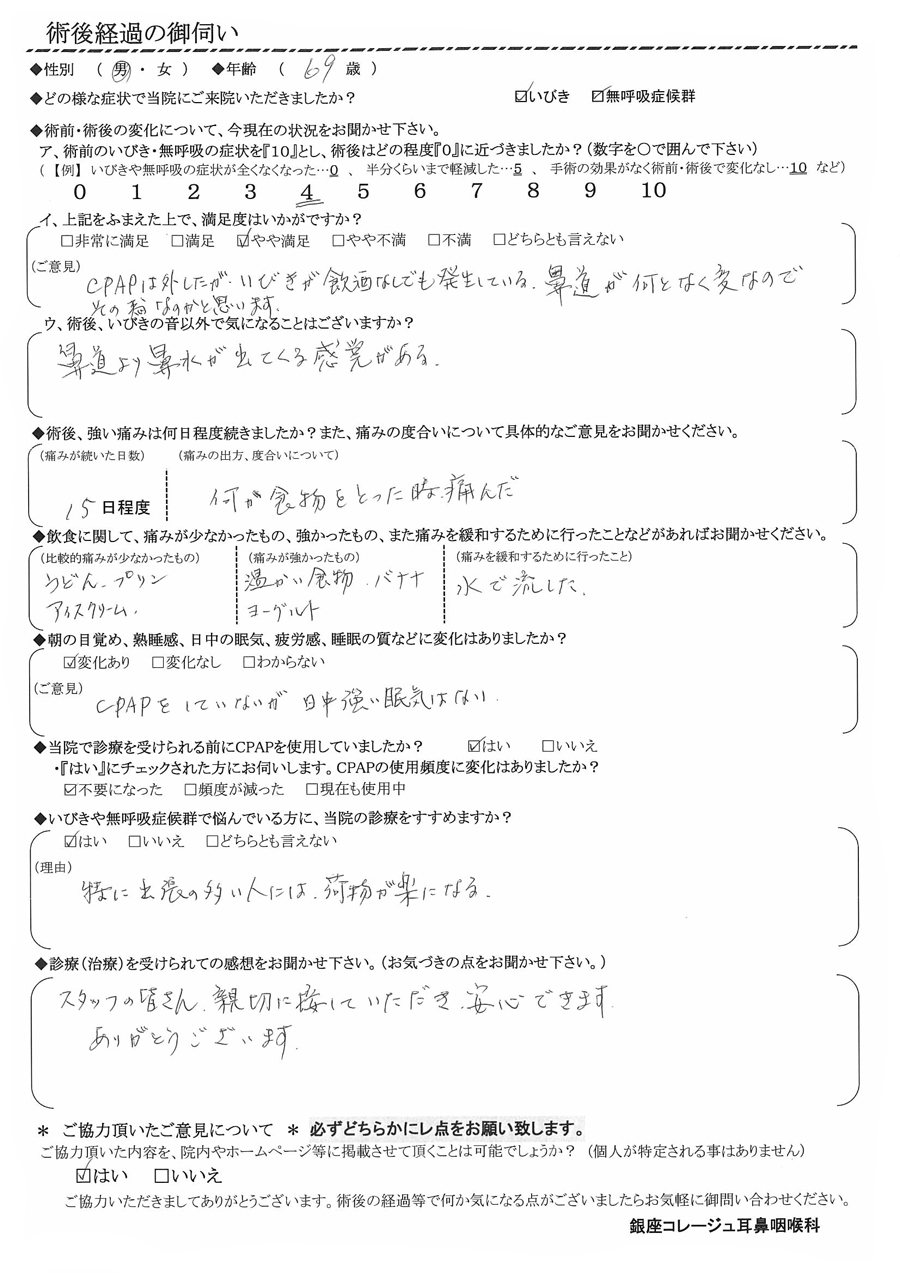 術後経過の御伺い
◆性別 （ 男 ・ 女 ） ◆年齢 （ 69 歳 ）
◆どの様な症状で当院にご来院いただきましたか？ ☑いびき ☑無呼吸症候群
◆術前・術後の変化について、今現在の状況をお聞かせ下さい。
ア、術前のいびき・無呼吸の症状を『10』とし、術後はどの程度『0』に近づきましたか？（数字を〇で囲んで下さい）
（【例】 いびきや無呼吸の症状が全くなくなった…0 、 半分くらいまで軽減した…5 、 手術の効果がなく術前・術後で変化なし…10 など）
0 1 2 3 4 5 6 7 8 9 10
イ、上記をふまえた上で、満足度はいかがですか？
□非常に満足 □満足 ☑やや満足 □やや不満 □不満 □どちらとも言えない
（ご意見）
CPAPは外したが、いびきが飲酒なしでも発生している。鼻道が何となく変なので
その為なのかと思います。
ウ、術後、いびきの音以外で気になることはございますか？
鼻道より鼻水が出てくる感覚がある。
◆術後、強い痛みは何日程度続きましたか？また、痛みの度合いについて具体的なご意見をお聞かせください。
（痛みが続いた日数） （痛みの出方、度合いについて）
15日程度 何か食物をとった時、痛んだ
◆飲食に関して、痛みが少なかったもの、強かったもの、また痛みを緩和するために行ったことなどがあればお聞かせください。
（比較的痛みが少なかったもの） （痛みが強かったもの） （痛みを緩和するために行ったこと）
うどん、プリン 温かい食物、バナナ 水で流した。
アイスクリーム。 ヨーグルト
◆朝の目覚め、熟睡感、日中の眠気、疲労感、睡眠の質などに変化はありましたか？
☑変化あり □変化なし □わからない
（ご意見）
CPAPをしていないが 日中強い眠気はない。
◆当院で診療を受けられる前にCPAPを使用していましたか？ ☑はい □いいえ
・『はい』にチェックされた方にお伺いします。CPAPの使用頻度に変化はありましたか？
☑不要になった □頻度が減った □現在も使用中
◆いびきや無呼吸症候群で悩んでいる方に、当院の診療をすすめますか？
☑はい □いいえ □どちらとも言えない
（理由）
特に出張の多い人には、荷物が楽になる。
◆診療（治療）を受けられての感想をお聞かせ下さい。（お気づきの点をお聞かせ下さい。）
スタッフの皆さん、親切に接していただき、安心できます。
ありがとうございます。
＊ ご協力頂いたご意見について ＊ 必ずどちらかにレ点をお願い致します。
ご協力頂いた内容を、院内やホームページ等に掲載させて頂くことは可能でしょうか？ （個人が特定される事はありません）
☑はい □いいえ
ご協力いただきましてありがとうございます。術後の経過等で何か気になる点がございましたらお気軽に御問い合わせください。
銀座コレージュ耳鼻咽喉科